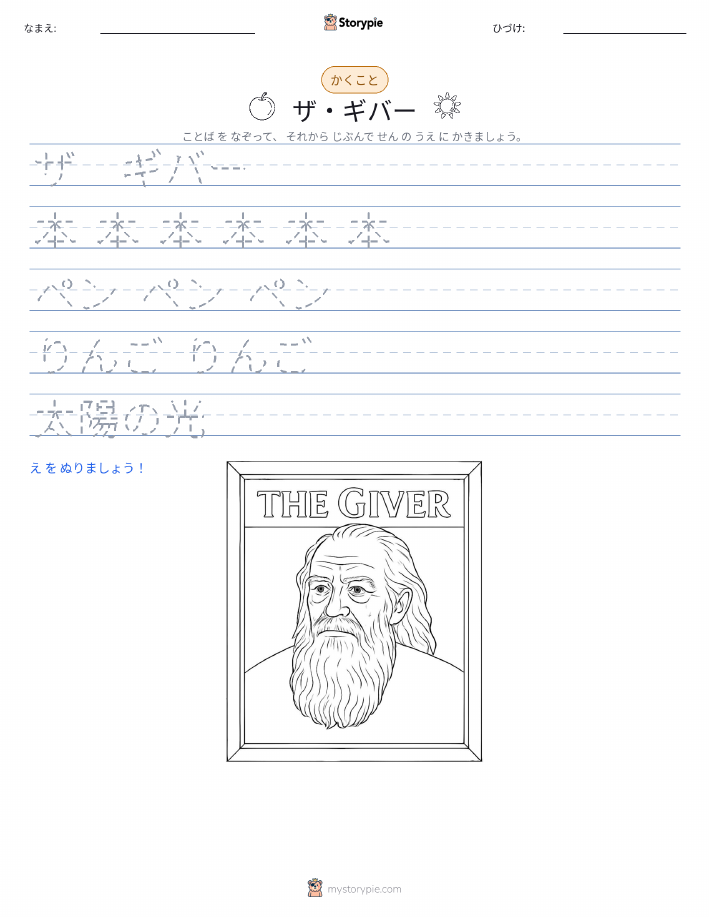 なまえ:
Storypie
ひづけ:
かくこと
ザ・ギバー
ことば を なぞって、 それから じぶんで せん の うえ に かきましょう。
ザ ギバー
本 本 本 本 本 本
ペン ペン ペン
りんご りんご
太陽の光
え を ぬりましょう！
THE GIVER
mystorypie.com